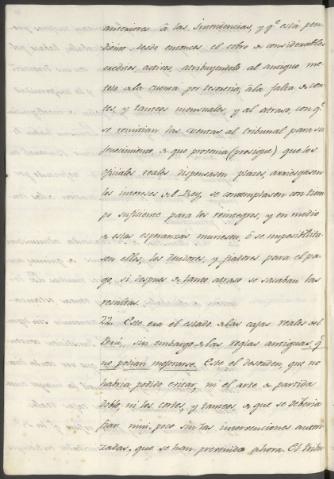 anteriores á las Intendencias, y qe está pen-
diente desde entonces el cobro de considerables
creditos activos, atribuyendolo al antiguo me-
todo de la cuenta por tercería, á la falta de cor-
tes, y tanteos mensuales y al atraso, con qe
se remitian las cuentas al tribunal para su
fenecimiento; de que provenia (prosigue) que los
oficiales reales dispensasen plazos, arriesgasen
los intereses del Rey, se contemplasen con tiem-
po suficiente para los reintegros, y en medio
de estas esperanzas muriesen, ó se imposibilita-
sen ellos, los deudores, y fiadores para el pa-
go, si despues de tanto atraso se sacaban las
resultas.
22. Este era el estado de las cajas reales del
Perú, sin embargo de las reglas antiguas, qe
no podian mejorarse. Este el desorden, que no
habria podido evitar, ni el arte de partida
doble, ni los cortes, y tanteos, de que se deberia
fiar mui poco sin las intervenciones autori-
zadas, que se han prevenido ahora. El tribu-